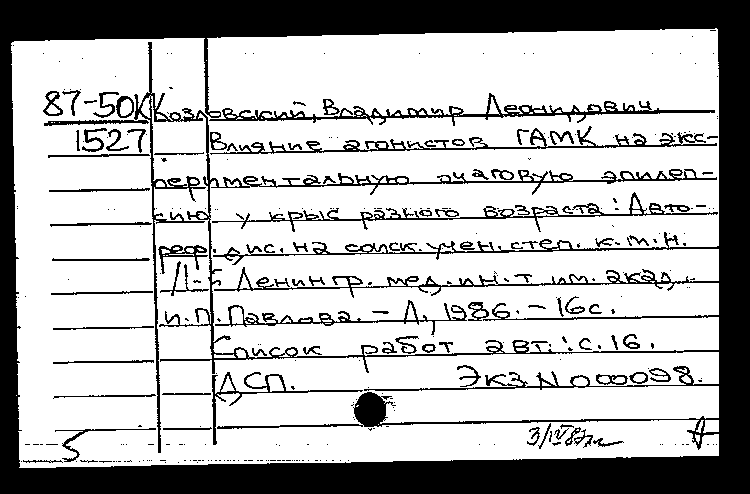 87-50К Козловский, Владимир Леонидович.
1527 Влияние агонистов ГАМК на экс-
периментальную очаговую эпилеп-
сию у крыс разного возраста: Авто-
реф. дис. на соиск. учен. степ. к. м. н.
/1-й Ленингр. мед. ин-т им. акад.
И. П. Павлова. – Л., 1986. – 16с.
Список работ авт.: с. 16.
ДСП. Экз. N 000098.
5 3/IV87г А